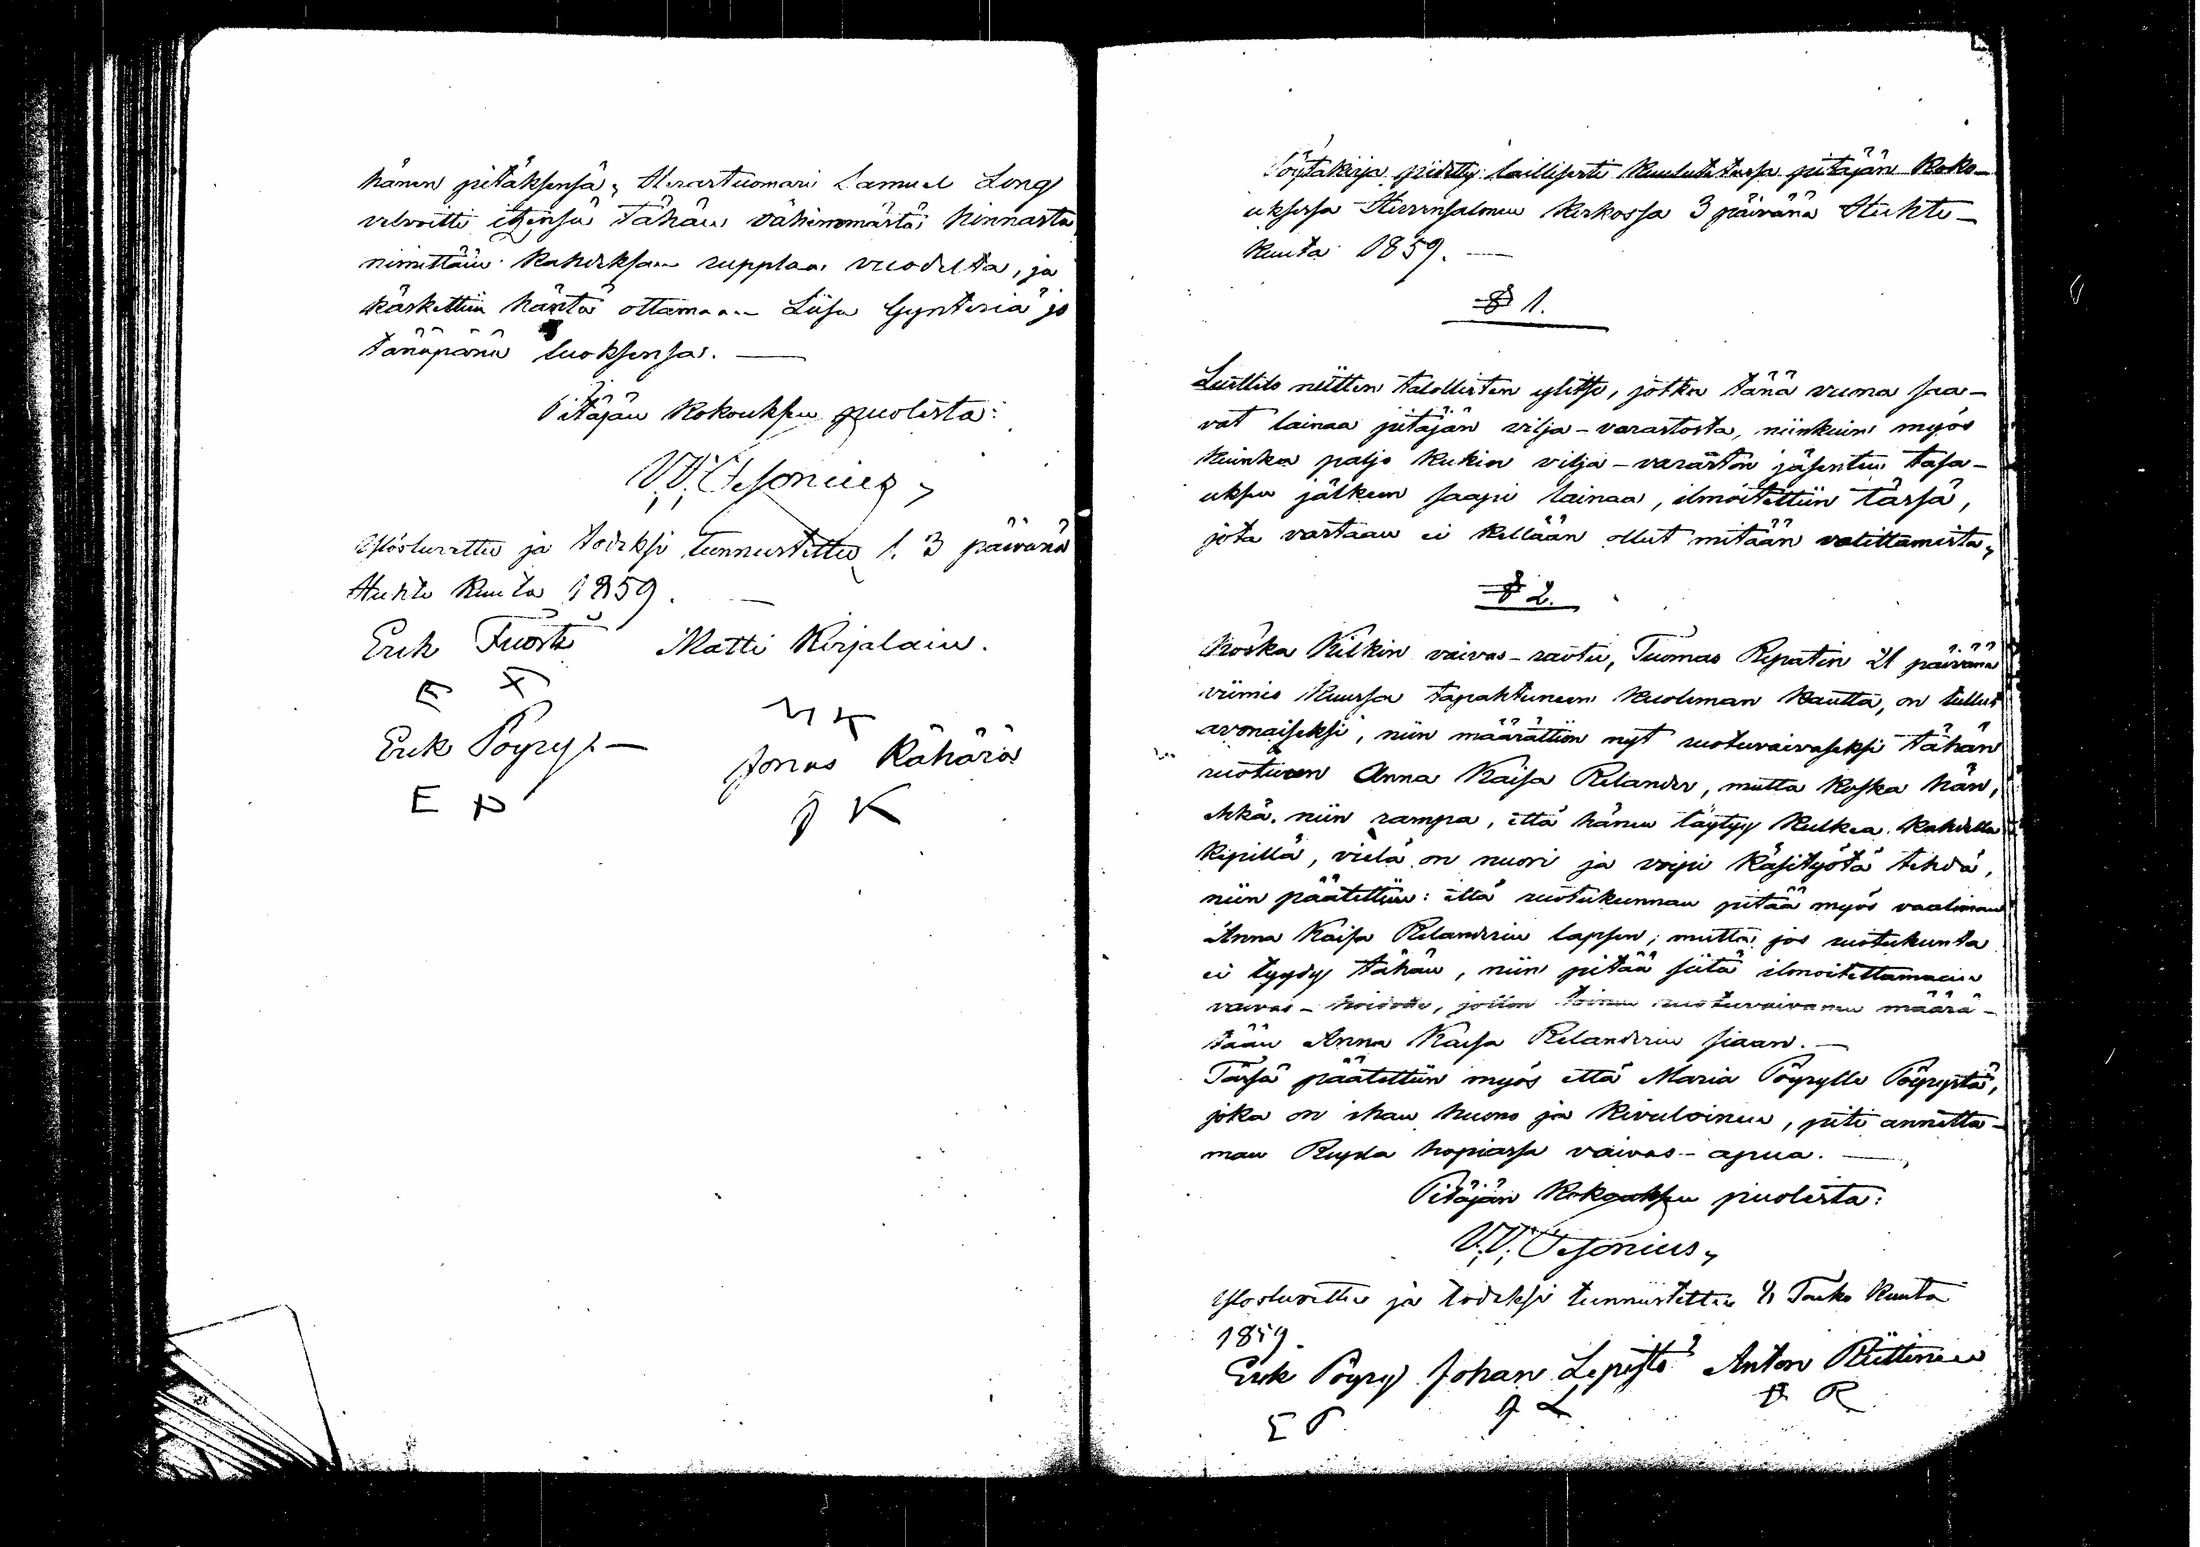 hänen pitäksensä, Herastuomari Samuel Long
velvoitti itzensä tähän vähemmästä hinnasta
nimittäin kahdeksan rupplaa vuodelta, ja
käskettiin häntä ottamaan Liisa Gynteriä jo
tänäpänä luoksensa. —
Pitäjän Kokouksen puolesta:
W. W. Cesonius,
Ylösluettu ja todeksi tunnustettu s. 3 päivänä
Huhti Kuuta 1859. —
Erik Fuosti Matti Kirjalain.
E F
M K
Erik Pöyry — Jonas Kähärä
E P J K
Pöytäkirja pidetty laillisesti kuulutetussa pitäjän koko-
uksessa Herrensalmen kirkossa 3 päivänä Huhti-
kuuta 1859. —
§ 1.
Luettelo niitten talollisten ylitse, jotka tänä vuona saa-
vat lainaa pitäjän vilja-varastosta, niinkuin myös
kuinka paljo kukin vilja-varaston jäsenten tasa-
uksen jälkeen saapi lainaa, ilmoitettiin tässä,
jota vastaan ei kellään ollut mitään valittamista,
§ 2.
Koska Kilkin vaivas-ruotu, Tuomas Repatin 21 päivänä
viimis kuussa tapahtuneen kuoleman kautta, on tullut
avonaiseksi, niin määrättiin nyt ruotuvaivaseksi tähän
ruotuun Anna Kaisa Relander, mutta koska hän,
ehkä niin rampa, että hänen täytyy kulkea kahdella
kepillä, vielä on nuori ja voipi käsityötä tehdä,
niin päätettiin: että ruotukunnan pitää myös vaaliman
Anna Kaisa Relanderin lapsen; mutta jos ruotukunta
ei tyydy tähän, niin pitää siitä ilmoitettamaan
vaivas-hoidolle, jolloin toinen ruotuvaivanen määrä-
tään Anna Kaisa Relanderin siaan. —
Tässä päätettiin myös että Maria Pöyrylle Pöyrystä,
joka on ihan huono ja kivuloinen, piti annetta-
man Rupla hopiassa vaivas-apua. —
Pitäjän Kokouksen puolesta:
W. W. Cesonius,
Ylösluettu ja todeksi tunnustettu Touko Kuuta
1859.
Erik Pöyry Johan Lepistö Anton Riittinen
E P J L A R